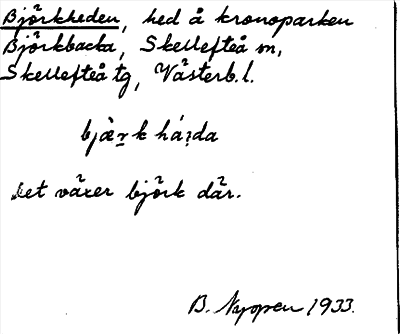 Björkheden, hed å kronoparken
Björkbacka, Skellefteå sn,
Skellefteå tg, Västerb. l.
bjæ̀rk há2da
Det växer björk där.
B. Nyopen 1933.